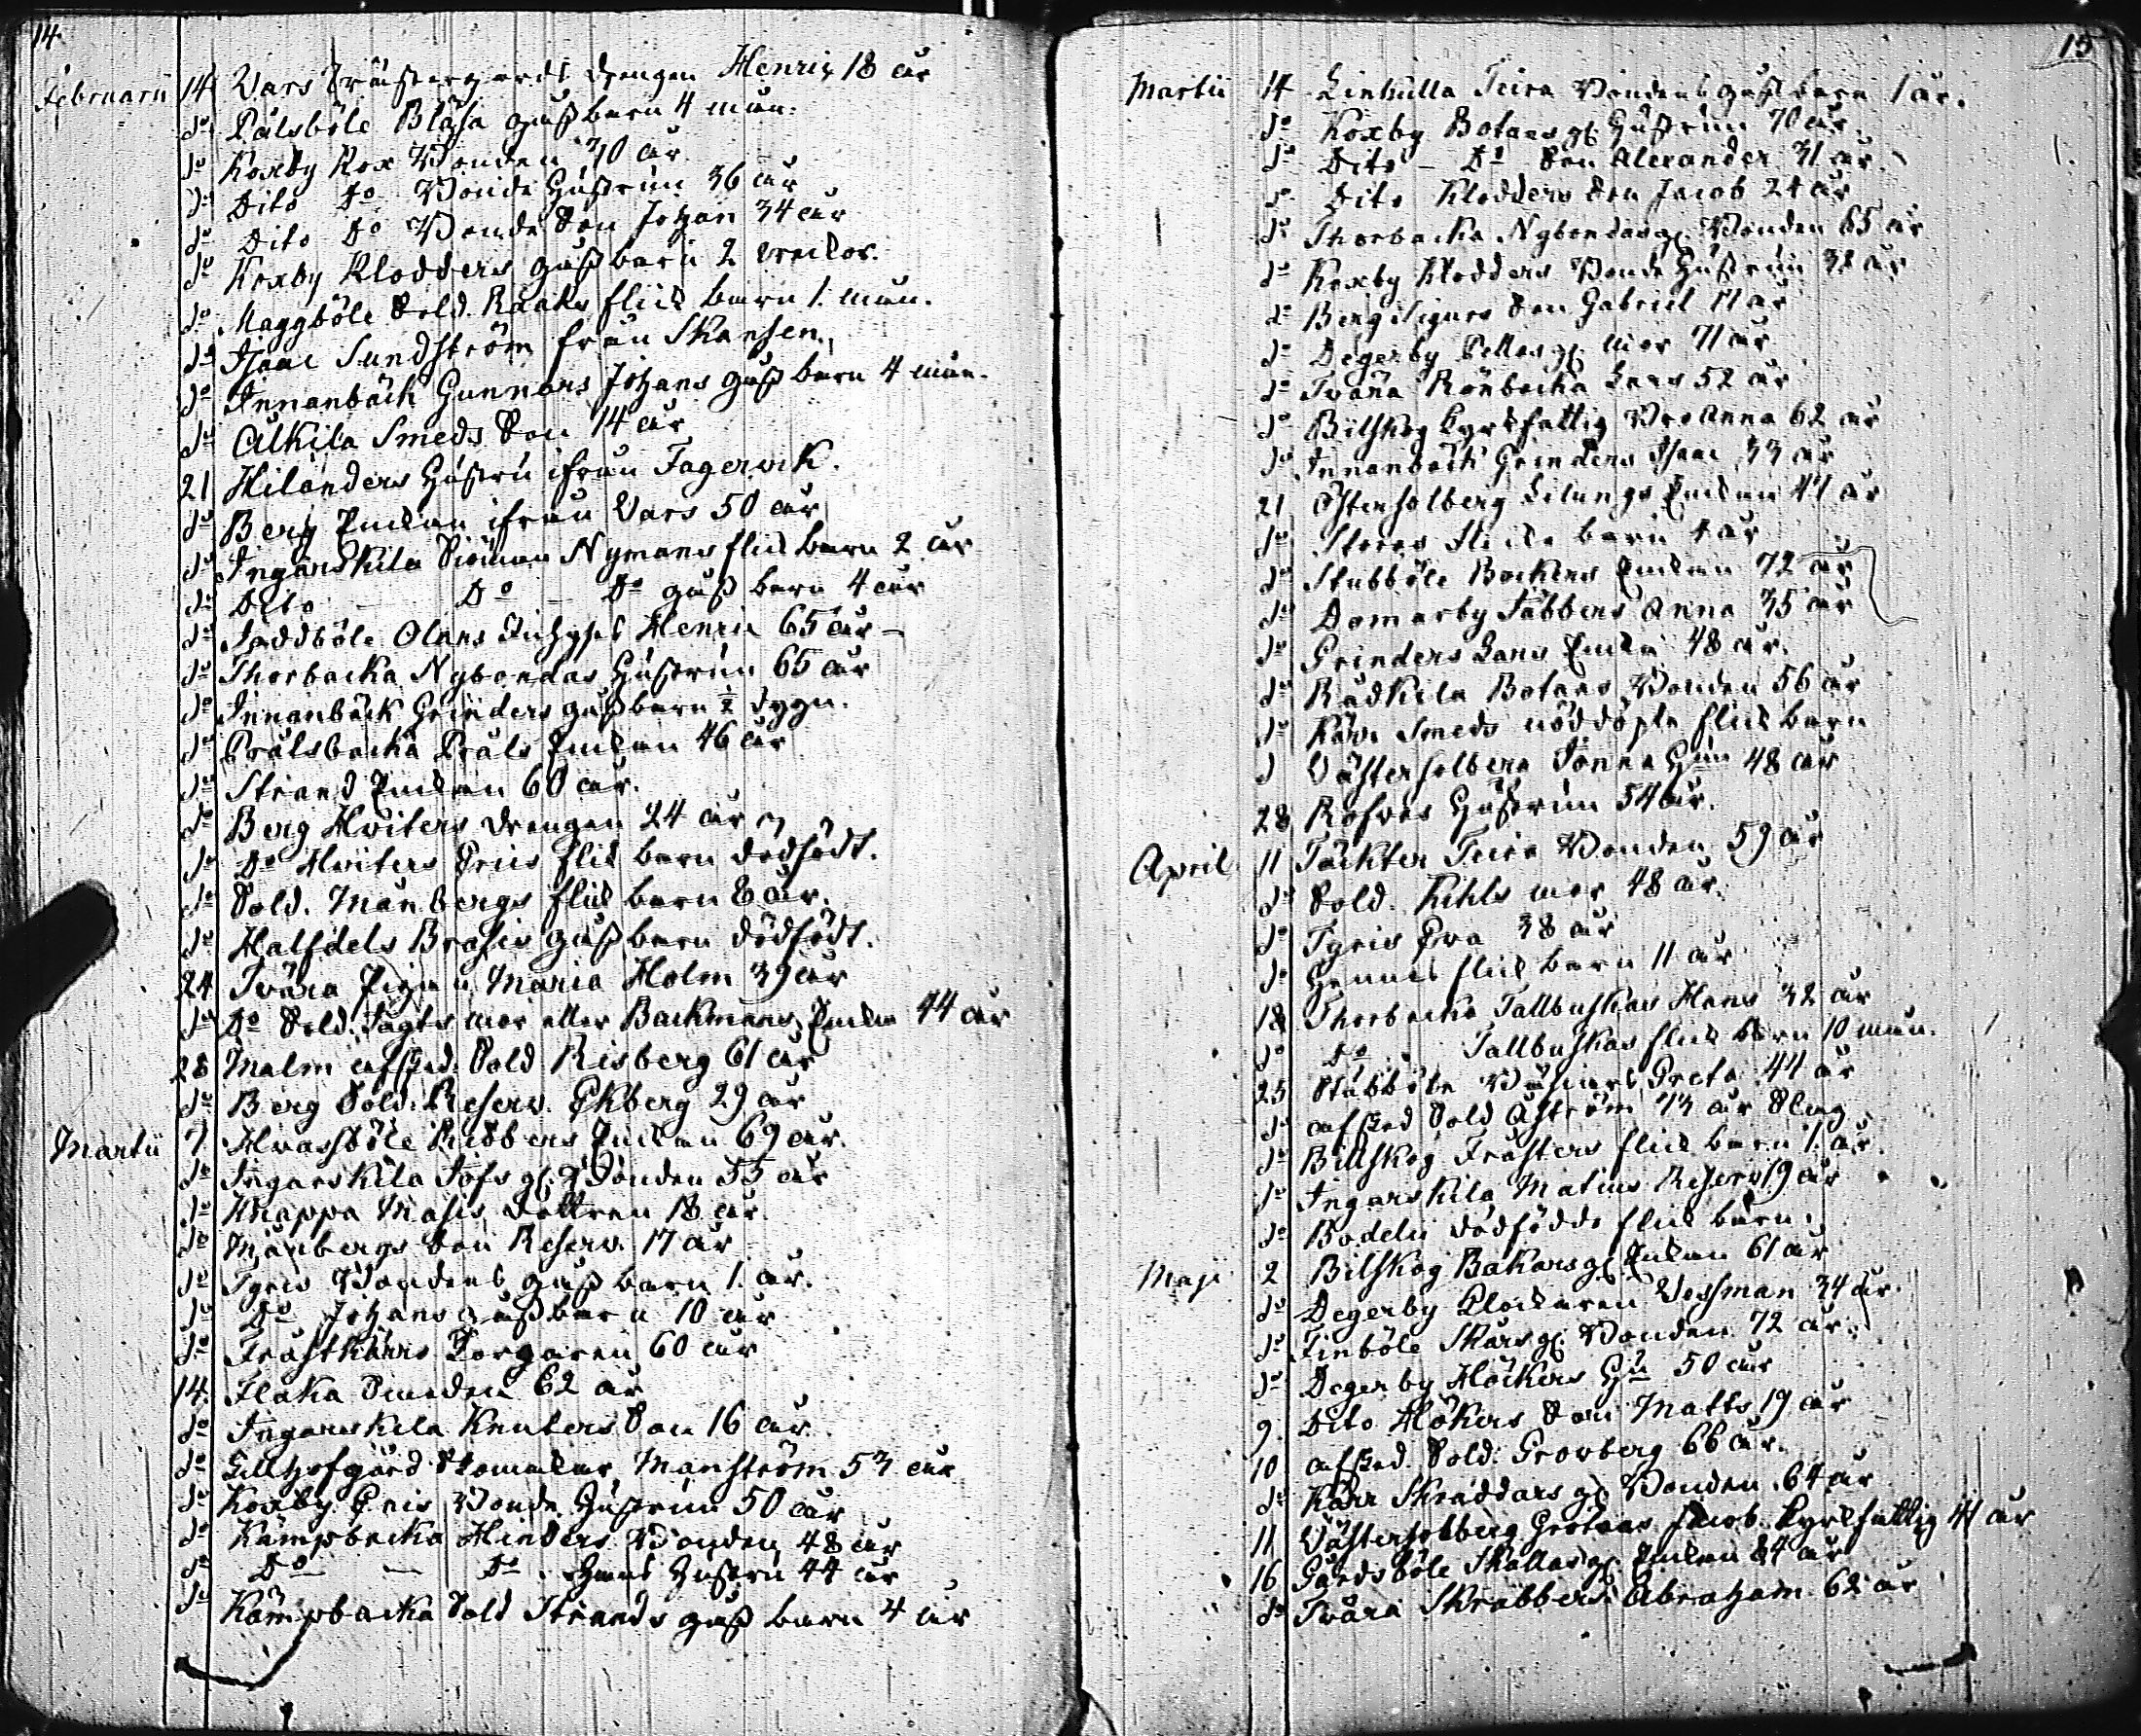 14.
Februarii 14 Wars drengen Henric 18 år
do Pålsböle Blåsa goss barn 4 mån.
do Koxby Kox Bonden 70 år
do Dito Do Bonde Hustrun 36 år
do Dito Do Bonde Son Johan 34 år
do Koxby Klodders goss barn 2 weckor.
do Maggböle Sold. Raaks flick barn 1. mån.
do Isaac Sundström från Skansen.
do Innanbäck Gunnars Johans goss barn 4 mån.
do Alkila Smeds Son 14 år
21 Hilanders Hustru ifrån Fagerwik.
do Berg Enckan ifrån Wars 50 år
do Ingarskila Simon Nymans flick barn 2 år
do Dito – Do – Do goss barn 4 år
do Jaddböle Olars Henric 65 år –
do Thorbacka Nybondas Hustrun 65 år
do Innanbäck Grinders goss barn ½ dygn.
do Prålsbacka Pråls Enckan 46 år
do Strand Enckan 60 år.
do Berg Hviters drengen 24 år
do Do Hviters flick barn dödfödt.
do Sold. Månbergs flick barn 8 år.
do Halfdels Brasis goss barn dödfödt.
24 Tvära Pigan Maria Holm 39 år
do Do Sold. Tagts mor eller Backmans Enckan 44 år
28 Malm afsked. Sold Risberg 61 år
do Berg Sold. Reserv. Ekberg 29 år
Martii 7 Hvassböle Ribbers Enckan 69 år.
do Ingarskila Tofs gl. Bonden 55 år
do Knappa Masis dottren 18 år.
do Månbergs Son Reserv. 17 år
do Tyris Bondens goss barn 1. år.
do Do Johans goss barn 10 år
do Torparen 60 år
14. Flaka Smeden 62 år
do Ingarskila Knuters Son 16 år.
do Gillhofgård Manström 53 år
do Koxby Bonde Hustrun 50 år
do Kämpbacka Hinders Bonden 48 år
do Do – Do. Hans Hustru 44 år
do Kämpbacka Sold Strands goss barn 4 år
15
Martii 14 Linkulla Teira Bondens goss barn 1 år.
do Koxby Botans gl. Hustrun 70 år.
do Dito – Do Son Alexander 31 år.
do Dito Klodders Son Jacob 24 år
do Thorbacka Nybondas gl. Bonden 65 år
do Koxby Klodders Bonde Hustrun 32 år
do Berg Sigurs Son Gabriel 11 år
do Degerby Pellas gl. mor 71 år
do Tvära Rönbacka Lars 52 år
do Bilskog kyrkfattig Anna 62 år
do Innanbäck Grinders Isaac 33 år
21 Östersolberg Lilungs Enckan 47 år
do Stores flicke barn 4 år
do Stubböle Backers Enckan 72 år
do Domarby Täbbers Anna 35 år
do Grinders Lars Encka 48 år.
do Rådkila Botans Bonden 56 år
do Kärr Smeds nöddöpta flick barn
d Västersolberg Tonna 48 år
28 Rofvas Hustrun 54 år.
April. 11 Täckter Teira Bonden 59 år
do Sold. Kihls mor 48 år.
do Tyris Eva 38 år
do Hennes flick barn 11 år
18 Thorbacka Tallbuskas Hans 32 år
do Do Tallbuskas flick barn 10 mån.
25 Stubböle Greta 44 år
do afsked Sold Åström 73 år
do Billskog Frästers flick barn 1. år.
do Ingarskila Matius Reserv 19 år
do Bodeln dödfödde flick barn.
Maji 2 Bilskog Bakars gl. Enckan 61 år
do Degerby Klockaren Wessman 34 år.
do Finböle Skärs gl. Bonden 72 år.
do Degerby Höckers 50 år
9. Dito Hökers Son Matts 19 år
10 afsked. Sold. Grovberg 66 år.
do Kärr Skräddars gl. Bonden. 64 år
11 Västersolberg Grotaas Jacob. kyrkfattig 41 år
16 Gårdsböle Skallas gl. Enckan 84 år
do Tvära Skrabbers Abraham 62 år